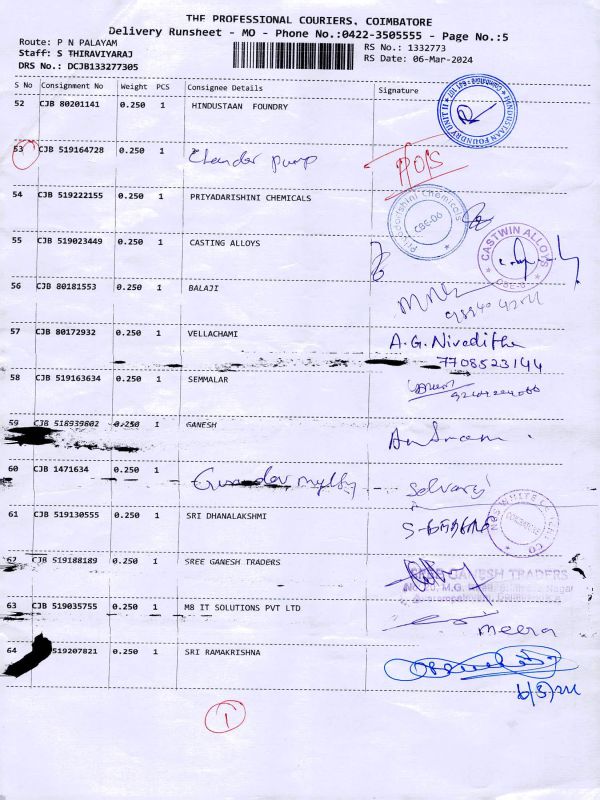 THE PROFESSIONAL COURIERS, COIMBATORE
Delivery Runsheet - MO - Phone No.:0422-3505555 - Page No.:5
Route: P N PALAYAM
Staff: S THIRAVIYARAJ
DRS No.: DCJB133277305
RS No.: 1332773
RS Date: 06-Mar-2024
S No Consignment No Weight PCS Consignee Details Signature
52 CJB 80201141 0.250 1 HINDUSTAAN FOUNDRY
53 CJB 519164728 0.250 1 Chandar pump
54 CJB 519222155 0.250 1 PRIYADARISHINI CHEMICALS
Priyadarishini Chemicals CBE-06
55 CJB 519023449 0.250 1 CASTING ALLOYS
CASTWIN ALLOYS CBE-6
56 CJB 80181553 0.250 1 BALAJI
57 CJB 80172932 0.250 1 VELLACHAMI A.G.Niveditha
7708523144
58 CJB 519163634 0.250 1 SEMMALAR
59 CJB 518939802 0.250 1 GANESH
60 CJB 1471634 0.250 1 Selvaraj
61 CJB 519130555 0.250 1 SRI DHANALAKSHMI
62 CJB 519188189 0.250 1 SREE GANESH TRADERS
SREE GANESH TRADERS
63 CJB 519035755 0.250 1 M8 IT SOLUTIONS PVT LTD
meera
64 519207821 0.250 1 SRI RAMAKRISHNA
6/3/24
1